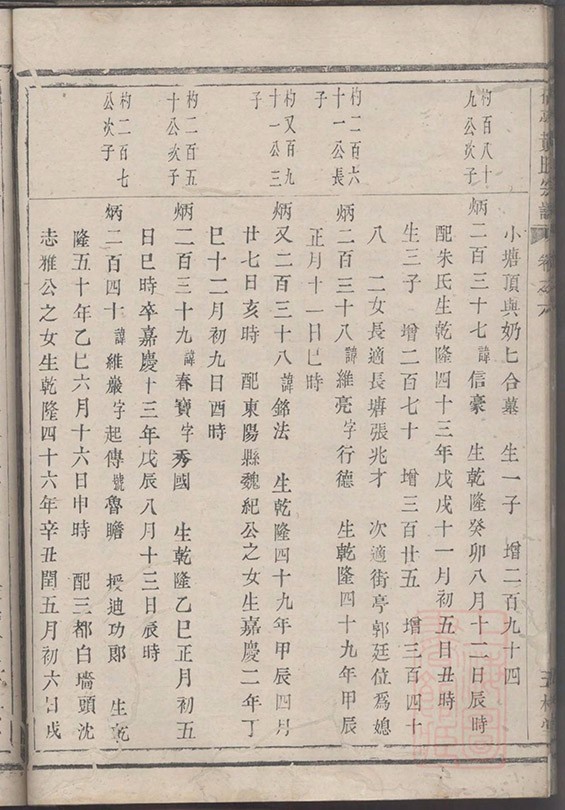 黃氏宗譜 卷之八
小塘頂與奶七合墓 生一子 增二百九十四
杓百八十九公次子
炳二百三十七諱信豪 生乾隆癸卯八月十二日辰時
配朱氏生乾隆四十三年戊戌十一月初五日丑時
生三子 增二百七十 增三百廿五 增三百四十
八 二女長適長塘張兆才 次適街亭郭廷位為媳
杓二百六十一公長子
炳二百三十八諱維亮字行德 生乾隆四十九年甲辰
正月十一日巳時
杓又百九十一公三子
炳又二百三十八諱銘法 生乾隆四十九年甲辰四月
廿七日亥時 配東陽縣魏紀公之女生嘉慶二年丁
巳十二月初九日酉時
杓二百五十公次子
炳二百三十九諱春寶字秀國 生乾隆乙巳正月初五
日巳時卒嘉慶十三年戊辰八月十三日辰時
杓二百七公次子
炳二百四十諱維嚴字起傳號魯瞻 授迪功郎 生乾
隆五十年乙巳六月十六日申時 配三都白墻頭沈
志雅公之女生乾隆四十六年辛丑閏五月初六日戌